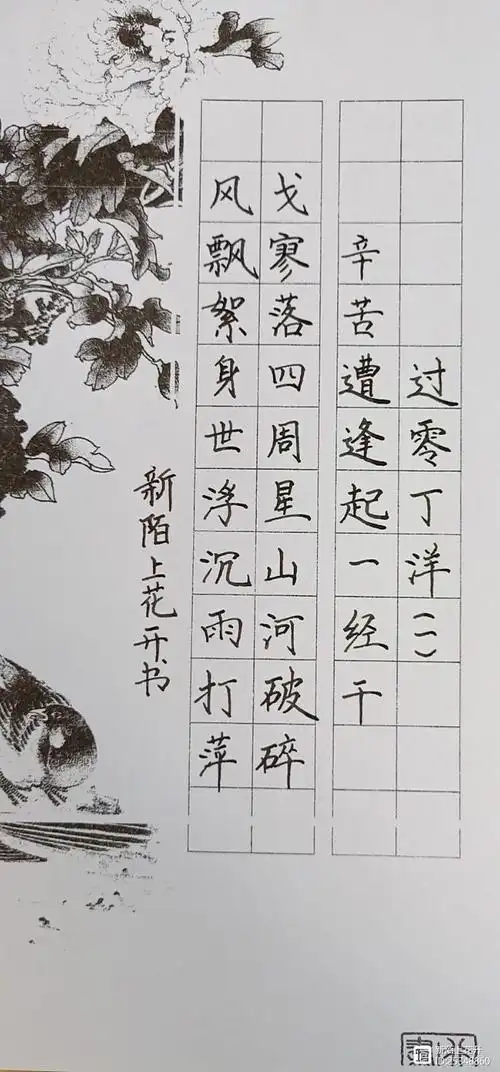 过零丁洋(一)
辛苦遭逢起一经干
戈寥落四周星山河破碎
风飘絮身世浮沉雨打萍
新陌上花开书
ID:25348860